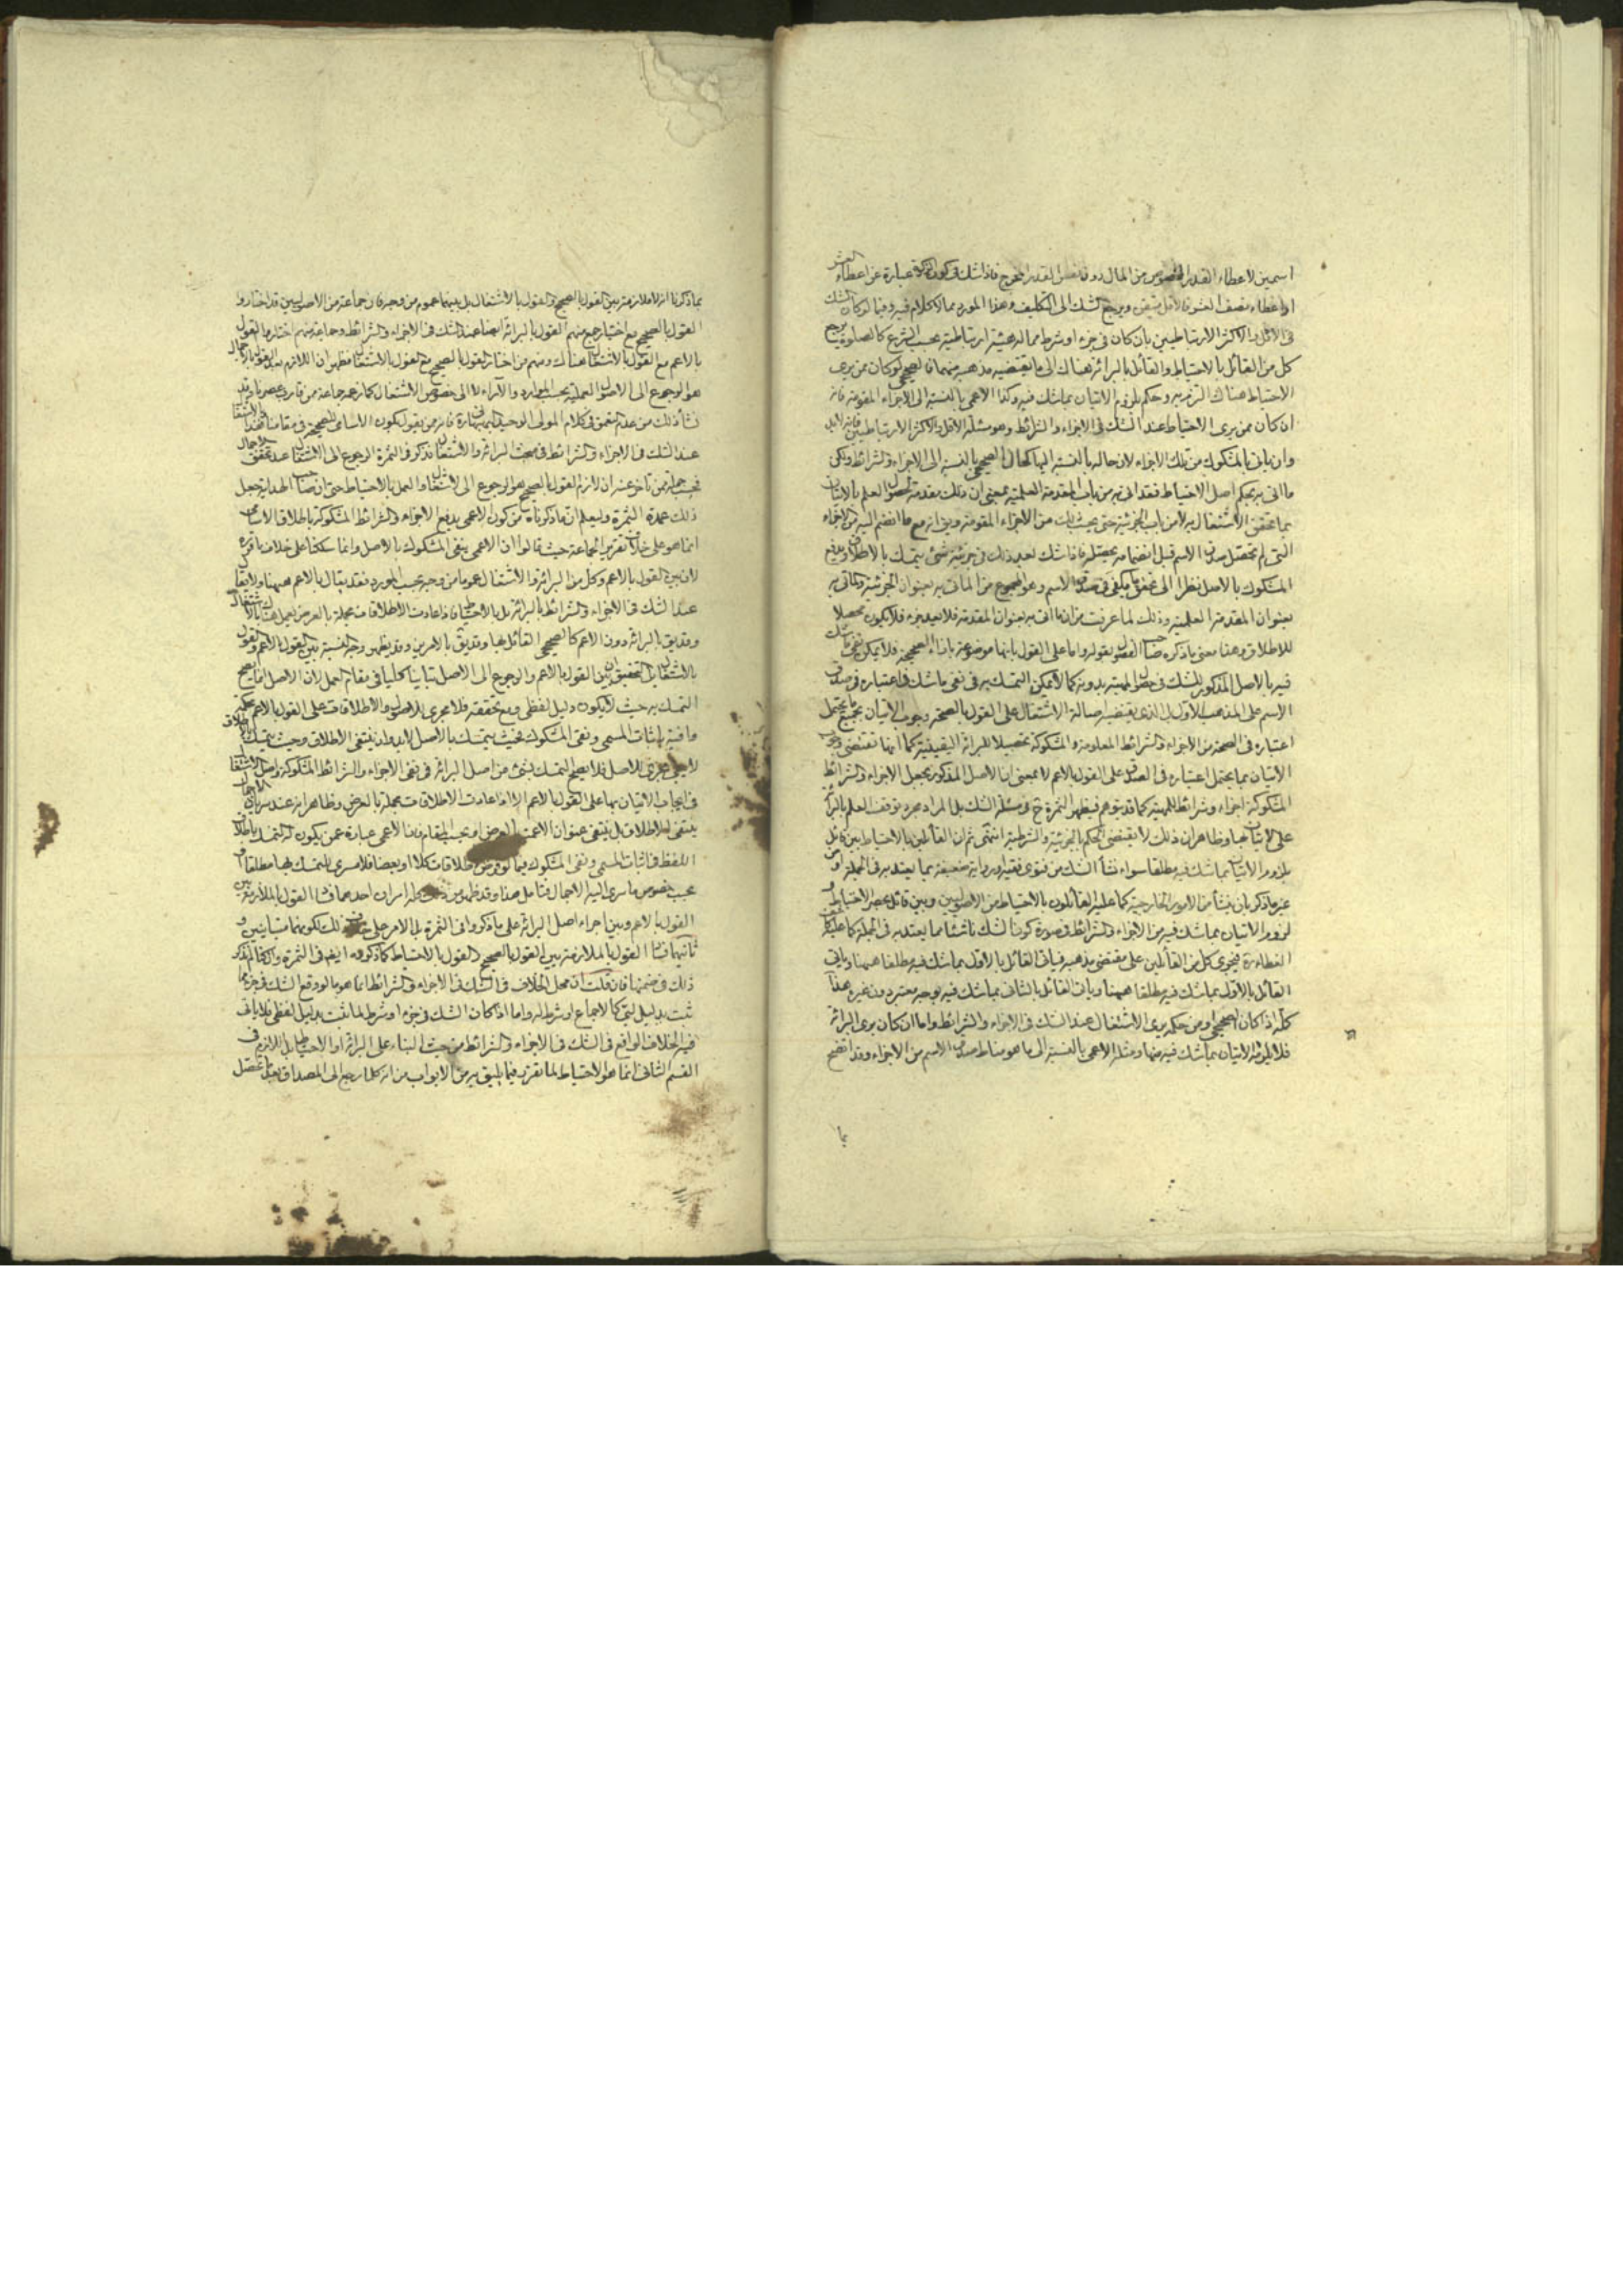 اسمين لاعطاء القدر المخصوص من المال دون نفس القدر المخرج فاذا شك فى كون الزكوة عبارة عن اعطاء العشر
او اعطاء نصف العشر فالاقل متيقن ويرجع الشك الى التكليف وهذا المورد مما لا كلام فيه وفيما لو كان الشك
فى الاقل والاكثر الارتباطيين بان كان فى جزء او شرط مما له هيئة ارتباطية بحسب الشرع كالصلوة يرجع
كل من القائل بالاحتياط والقائل بالبرائة هناك الى ما يقتضيه مذهبه منهما فالصحيحى لو كان ممن يرى
الاحتياط هناك التزم به وحكم بلزوم الاتيان بما شك فيه وكذا الاعمى بالنسبة الى الاجزاء المقومة فانه
ان كان ممن يرى الاحتياط عند الشك فى الاجزاء والشرائط وهو مسئلة الاقل والاكثر الارتباطيين فانه لابد
وان ياتى بالمشكوك من تلك الاجزاء لان حاله بالنسبة اليها كحال الصحيحى بالنسبة الى الاجزاء والشرائط ولكن
ما اتى به بحكم اصل الاحتياط فقد اتى به من باب المقدمة العلمية بمعنى ان ذلك مقدمة لحصول العلم بالاتيان
بما تحقق الاشتغال به لا من باب الجزئية حتى يحسب ذلك من الاجزاء المقومة ويق انه مع ما انضم اليه من الاجزاء
التى لم تحصل صدق الاسم قبل انضمامه يحصله فاذا شك بعد ذلك فى جزئية شئ يتمسك بالاطلاق ويدفع
المشكوك بالاصل نظرا الى تحقق ما يكفى فى صدق الاسم وهو المجموع من الماتى به بعنوان الجزئية والماتى به
بعنوان المقدمة العلمية وذلك لما عرفت من ان ما اتى به بعنوان المقدمة فلا يعد جزء فلا يكون محصلا
للاطلاق وهذا معنى ما ذكره صاحب الفصول بقوله واما على القول بانها موضوعة بازاء الصحيحة فلا يمكن نفى ما شك
فيه بالاصل المذكور للشك فى حصول المهية بدونه كما لا يمكن التمسك به فى نفى ما شك فى اعتباره فى صدق
الاسم على المذهب الاول بل الذى يقتضيه اصالة الاشتغال على القول بالصحة وجوب الاتيان بجميع ما يحتمل
اعتباره فى الصحة من الاجزاء والشرائط المعلومة والمشكوكة تحصيلا للبرائة اليقينية كما انها تقتضى وجوب
الاتيان بما يحتمل اعتباره فى الصدق على القول بالاعم لا بمعنى ان الاصل المذكور يجعل الاجزاء والشرائط
المشكوكة اجزاء وشرائط للمهية كما قد يتوهم فيظهر الثمرة ح فى مسئلة الشك بل المراد مجرد توقف العلم بالبرائة
على الاتيان بها وظاهر ان ذلك لا يقتضى الحكم بالجزئية والشرطية انتهى ثم ان القائلين بالاحتياط بين قائل
بلزوم الاتيان بما شك فيه مطلقا سواء نشأ الشك من فتوى فقيه او رواية ضعيفة بما يعتد به فى الجملة او من
غير ما ذكر بان ينشأ من الامور الخارجية كما عليه القائلون بالاحتياط من الاصوليين وبين قائل
لزوم الاتيان بما شك فيه من الاجزاء والشرائط فى صورة كون الشك ناشئا مما يعتد به فى الجملة كما عليه
فيجرى كل من القائلين على مقتضى مذهبه فياتى القائل بالاول بما شك فيه مطلقا هيهنا وياتى
القائل بالاول بما شك فيه مطلقا هيهنا وياتى القائل بالثانى بما شك فيه بوجه معتبر دون غيره هذا
كله اذا كان الصحيحى او من حكمه يرى الاشتغال عند الشك فى الاجزاء والشرائط واما ان كان يرى البرائة
فلا يلزمه الاتيان بما شك فيه منها ومثله الاعمى بالنسبة الى ما هو مناط صدق الاسم من الاجزاء وقد اتضح
بما
بما ذكرنا انه لا ملازمة بين القول بالصحيح والقول بالاشتغال بل بينهما عموم من وجه فان جماعة من الاصوليين قد اختاروا
القول بالصحيح مع اختيار جمع منهم القول بالبرائة ايضا عند الشك فى الاجزاء والشرائط وجماعة منهم اختاروا القول
بالاعم مع القول بالاشتغال هناك ومنهم من اختار القول بالصحيح مع القول بالاشتغال فظهر ان اللازم بعد القول بالاجمال
هو الرجوع الى الاصول العملية بحسب الموارد والآراء لا الى خصوص الاشتغال كما زعمه جماعة ممن قارب عصرنا وقد
نشأ ذلك من عدم التعمق فى كلام المولى الوحيد البهبهانى فانه ممن يقول بكون الاسامى للصحيحة وفى مقامنا هذا بالاشتغال
عند الشك فى الاجزاء والشرائط فى مبحث البرائة والاشتغال فذكر فى الثمرة الرجوع الى الاشتغال عند تحقق الاجمال
فحسب جملة ممن تاخر عنه ان لازم القول بالصحيح هو الرجوع الى الاشتغال والعمل بالاحتياط حتى ان صاحب الهداية جعل
ذلك عمدة الثمرة وليعلم ان ما ذكرناه من كون الاعمى يدفع الاجزاء والشرائط المشكوكة باطلاق الاسامى
انما هو على خلاف تقرير الجماعة حيث قالوا ان الاعمى ينفى المشكوك بالاصل وانما سلكنا على خلاف ما قرره
لان بين القول بالاعم وكل من البرائة والاشتغال عموما من وجه بحسب المورد فقد يقال بالاعم هيهنا ولا يقال
عند الشك فى الاجزاء والشرائط بالبرائة بل بالاحتياط فاذا عادت الاطلاقات مجملة بالعرض يعمل هناك بالاشتغال
وقد يق بالبرائة دون الاعم كالصحيحى القائل بها وقد يق بالامرين وقد يظهر وجه النسبة بين القول بالاعم والقول
بالاشتغال بل التحقيق ان بين القول بالاعم والرجوع الى الاصل تباينا كليا فى مقام العمل لان الاصل انما يصح
التمسك به حيث لا يكون دليل لفظى ومع تحققه فلا مجرى للاصول والاطلاقات على القول بالاعم محكمة
وافية باثبات المسمى ونفى المشكوك فحيث يتمسك بالاصل لابد وان ينتفى الاطلاق وحيث يتمسك بالاطلاق
لا يبقى مجرى للاصل فلا يصح التمسك بشئ من اصل البرائة فى نفى الاجزاء والشرائط المشكوكة واصل الاشتغال
فى ايجاب الاتيان بها على القول بالاعم الا اذا عادت الاطلاقات مجملة بالعرض وظاهر انه عند سريان الاجمال
ينتفى الاطلاق بل ينتفى عنوان الاعمى بالعرض او بحسب المقام فان الاعمى عبارة عمن يكون له التمسك باطلاق
اللفظ فى اثبات المسمى ونفى المشكوك فيما لو فرض اطلاقات كلا او بعضا فلا سرى للتمسك بها مطلقا او
بحسب خصوص ما سرى اليه الاجمال فتامل هذا وقد ظهر من ذلك كله امران احدهما فساد القول بالملازمة بين
القول بالاعم وبين اجراء اصل البرائة على ما ذكروا فى الثمرة بل الامر على خلاف ذلك لكونهما متباينين و
ثانيهما فساد القول بالملازمة بين القول بالصحيح والقول بالاحتياط كما ذكروه ايضا فى الثمرة
ذلك فى ضمنها فان قلت ان محل الخلاف فى الشك فى الاجزاء والشرائط انما هو ما لو وقع الشك فى جزء مما
ثبت بدليل لبى كالاجماع او شرط له واما اذا كان الشك فى جزء او شرط لما ثبت بدليل لفظى فلا ياتى
فيه الخلاف الواقع فى الشك فى الاجزاء والشرائط من حيث البناء على البرائة او الاحتياط بل اللازم فى
القسم الثانى انما هو الاحتياط لما تقرر فيما يليق به من الابواب من انه كلما رجع الى المصداق